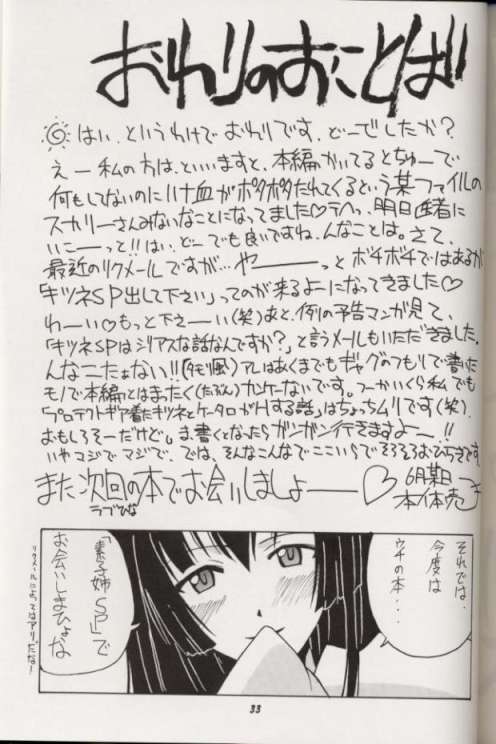 おわりのおことば!!
はい、というわけで おわりです、どーでしたか?
えー 私の方は、といいますと、本編かいてるとちゅーで
何もしないのにハナ血がボタボタたれてくるという某ファイルの
スカリーさんみないなことになってました♡テヘっ、明日医者に
いこーーっと!!はい、どーでも良いですね、んなことは。さて、
最近のリクメールですが…やーーーーっと ボチボチではあるが
「キツネSP出して下さい」ってのが来るよーになってきました♡
わーい♡もっと下さーい(笑)あと、例の予告マンガ見て、
「キツネSPはシリアスな話なんですか?」と言うメールもいただきました。
んなこたぁない!!(タモリ風)アレはあくまでもギャグのつもりで書いた
モノで本編とはまったく(たぶん)カンケーないです。つーかいくら私でも
「プロテクトギア着たキツネとケータロがHする話」はちょっちムリです(笑)、
おもしろそーだけど。ま、書くとなったらガンガン行きますよー!!
いやマジで マジで、では、そんなこんなでここいらでそろそろおひらきです
また次回の本でお会いしましょーーー♡
ラブひな
6月期一
本体売
それでは、
今度は
ウチの本・・・
「素子姉SP」で
お会いしまひょな
リクメールによってはアリだな!
33